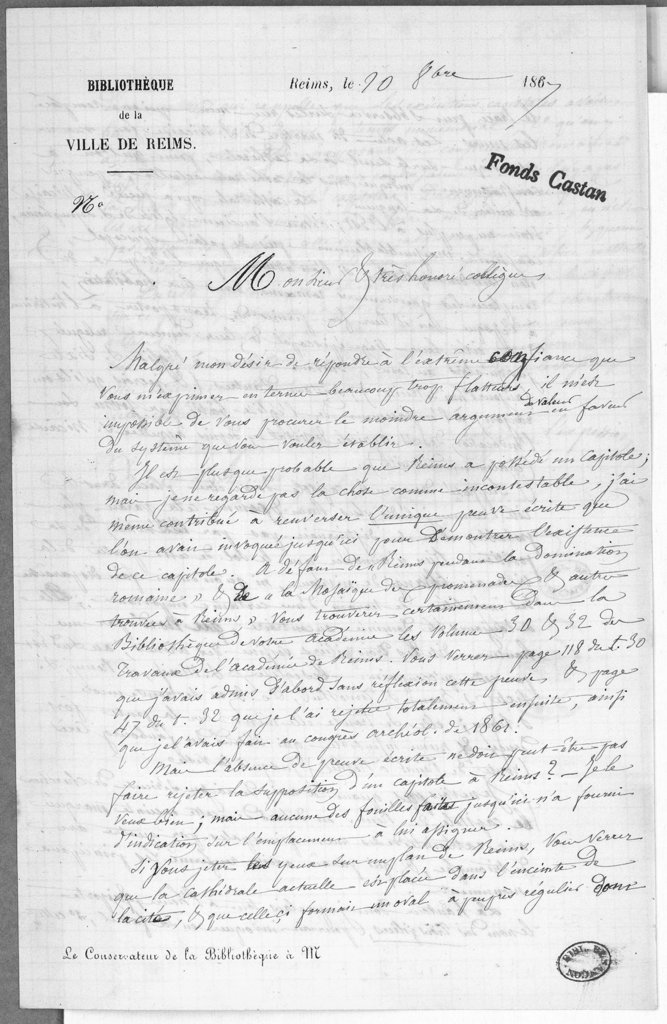 BIBLIOTHÈQUE
de la
VILLE DE REIMS.
Reims, le 20 8bre 1867
Fonds Castan
No
Monsieur & très honoré collègue,
Malgré mon désir de répondre à l'extrême confiance que
vous m'exprimer en terme beaucoup trop flatteurs, il m'est
impossible de vous procurer le moindre argument de valeur en faveur
du système que vous voulez établir.
Il est plus que probable que Reims a possédé un capitole;
mais je ne regarde pas la chose comme incontestable, j'ai
même contribué à renverser l'unique preuve écrite que
l'on avait invoquée jusqu'ici pour démontrer l'existence
de ce capitole. A défaut de Reims pendant la domination
romaine » & de « la Mosaïque des promenades & autres
trouvées à Reims » vous trouverez certainement dans la
Bibliothèque de votre académie les volumes 30 & 32 des
travaux de l'académie de Reims. Vous verrez page 118 du t. 30
que j'avais admis d'abord sans réflexion cette preuve, & page
47 du t. 32 que je l'ai rejetée totalement ensuite, ainsi
que je l'avais fait au congrès archéol. de 1861.
Mais l'absence de preuve écrite ne doit peut-être pas
faire rejeter la supposition d'un capitole à Reims? — Je le
veux bien; mais aucune des fouilles faites jusqu'ici n'a fourni
d'indication sur l'emplacement à lui assigner.
Si vous jetez les yeux sur un plan de Reims, vous verrez
que la cathédrale actuelle est placée dans l'enceinte de
la cité, & que celle-ci formait un oval à peu près régulier dont
Le Conservateur de la Bibliothèque à M
BIBL. BESANÇON